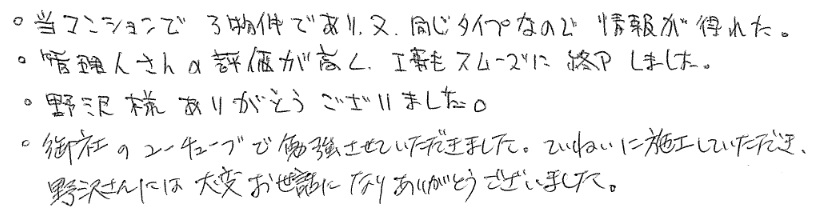 。当マンションで3物件であり、又、同じタイプなので情報が得れた。
・管理人さんの評価が高く、工事もスムーズに終了しました。
・野沢様ありがとうございました。
・御社のユーチューブで勉強させていただきました。ていねいに施工していただき、
野沢さんには大変お世話になりありがとうございました。